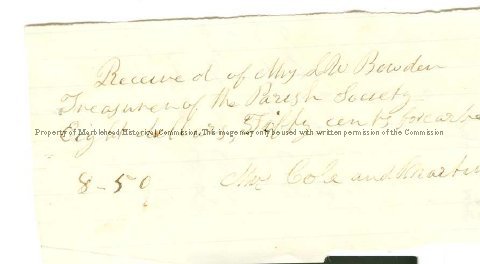 Received of Mrs S W Bowden
Treasurer of the Parish Society
Property of Marblehead Historical Commission. This image may only be used with written permission of the Commission
Eight dollars, Fifty cents for
8-50 Cole and Martin